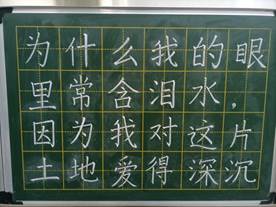 为什么我的眼
里常含泪水，
因为我对这片
土地爱得深沉